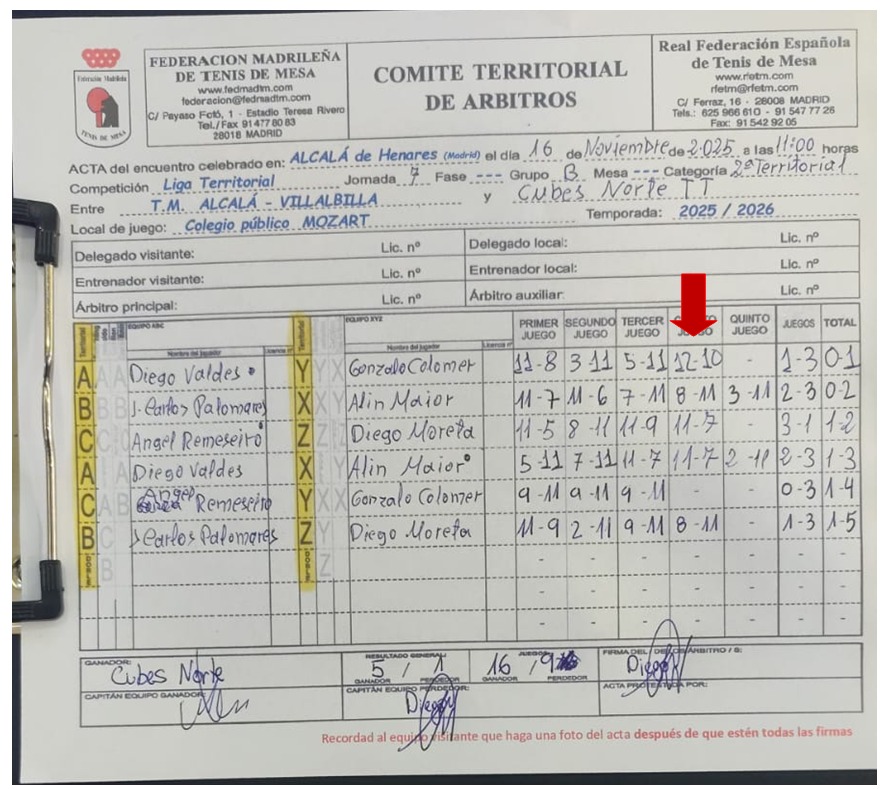 FEDERACION MADRILEÑA
DE TENIS DE MESA
www.fedmadtm.com
federacion@fedmadtm.com
C/ Payaso Fofó, 1 - Estadio Teresa Rivero
Tel./Fax 91 477 80 83
28018 MADRID
COMITE TERRITORIAL
DE ARBITROS
Real Federación Española
de Tenis de Mesa
www.rfetm.com
rfetm@rfetm.com
C/ Ferraz, 16 - 28008 MADRID
Tels.: 625 966 610 - 91 547 77 26
Fax: 91 542 92 05
Federación Madrileña
TENIS DE MESA
ACTA del encuentro celebrado en: ALCALÁ de Henares (Madrid) el día 16 de Noviembre de 2.025 a las 11:00 horas
Competición Liga Territorial Jornada 7 Fase --- Grupo B Mesa --- Categoría 2ª Territorial
Entre T.M. ALCALÁ - VILLALBILLA y Cubes Norte TT
Local de juego: Colegio público MOZART Temporada: 2025 / 2026
Delegado visitante: Lic. nº Delegado local: Lic. nº
Entrenador visitante: Lic. nº Entrenador local: Lic. nº
Árbitro principal: Lic. nº Árbitro auxiliar: Lic. nº
Territorial EQUIPO ABC Nombre del jugador Licencia nº Territorial EQUIPO XYZ Nombre del jugador Licencia nº PRIMER JUEGO SEGUNDO JUEGO TERCER JUEGO JUEGO QUINTO JUEGO JUEGOS TOTAL
A A A Diego Valdes Y Y X Gonzalo Colomer 11-8 3-11 5-11 12-10 - 1-3 0-1
B B B J. Carlos Palomares X X Y Alin Maior 11-7 11-6 7-11 8-11 3-11 2-3 0-2
C C C Angel Remeseiro Z Z Z Diego Moreta 11-5 8-11 11-9 11-7 - 3-1 1-2
A A Diego Valdes X Y Alin Maior 5-11 7-11 11-7 11-7 2-11 2-3 1-3
C A B Angel Remeseiro Y X X Gonzalo Colomer 9-11 9-11 9-11 - - 0-3 1-4
B C J Carlos Palomares Z Y Diego Moreta 11-9 2-11 9-11 8-11 - 1-3 1-5
B Z - - - - - - -
- - - - - - -
- - - - - - -
GANADOR: Cubes Norte RESULTADO GENERAL: 5 / 1 GANADOR PERDEDOR JUEGOS: 16 / 9 GANADOR PERDEDOR FIRMA DEL / DE LOS ÁRBITRO / S: Diego
CAPITÁN EQUIPO GANADOR: CAPITÁN EQUIPO PERDEDOR: Diego ACTA PROTESTADA POR:
Recordad al equipo visitante que haga una foto del acta después de que estén todas las firmas